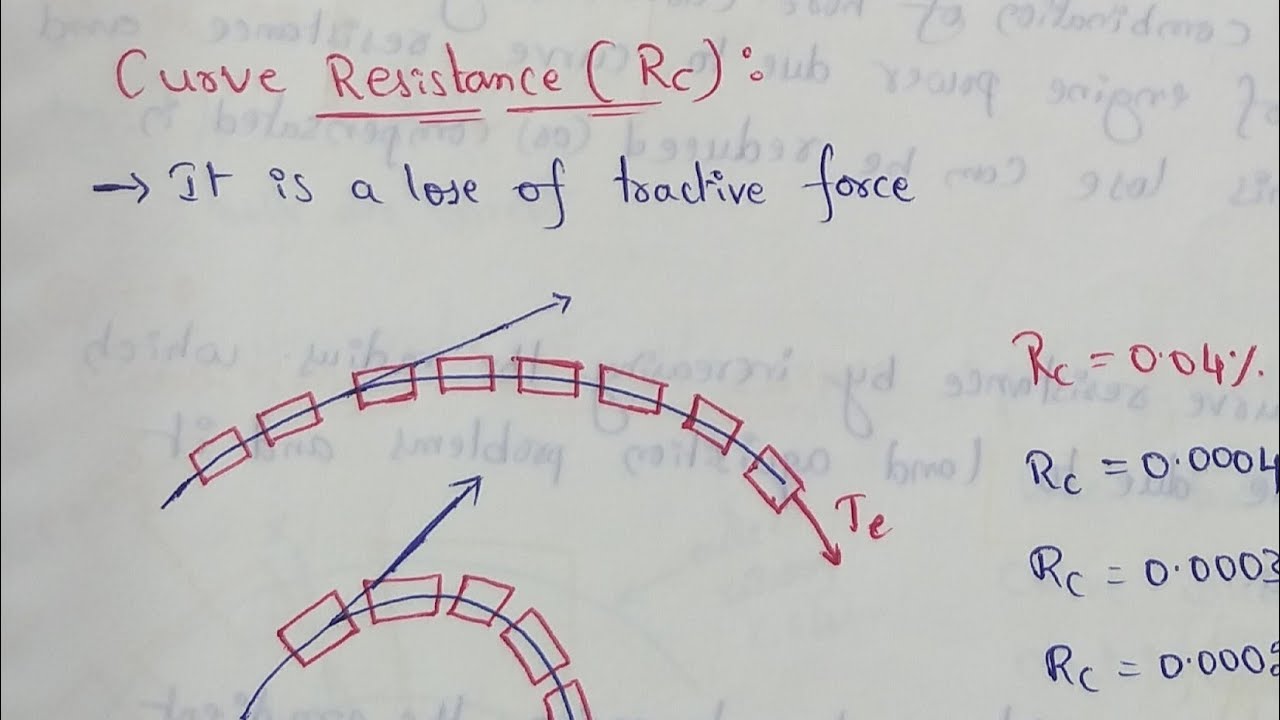 Curve Resistance (Rc) :
→ It is a lose of tractive force
Rc = 0.04%.
Rc = 0.0004
Rc = 0.0003
Rc = 0.000
Te